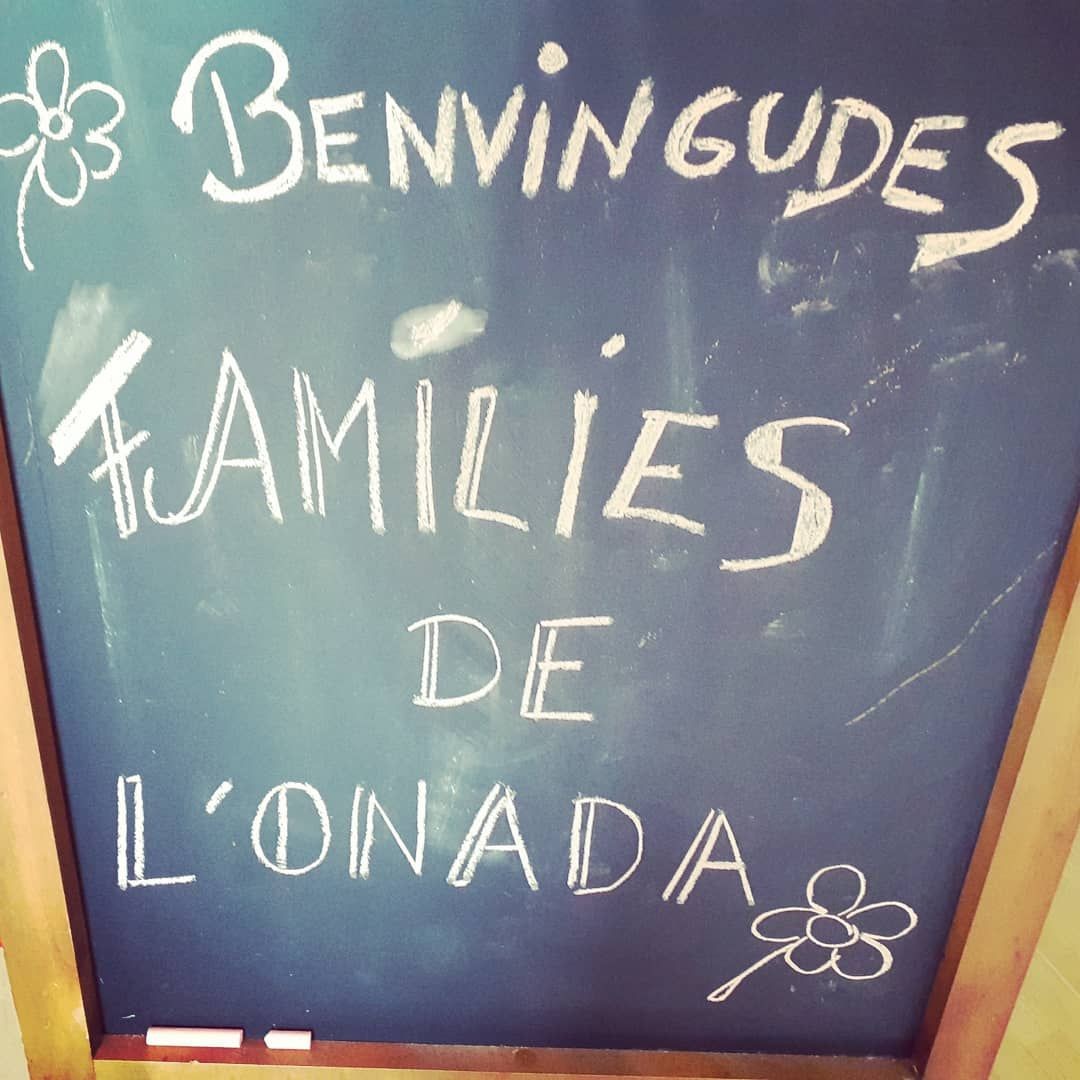 BENVINGUDES
FAMÍLIES
DE
L'ONADA